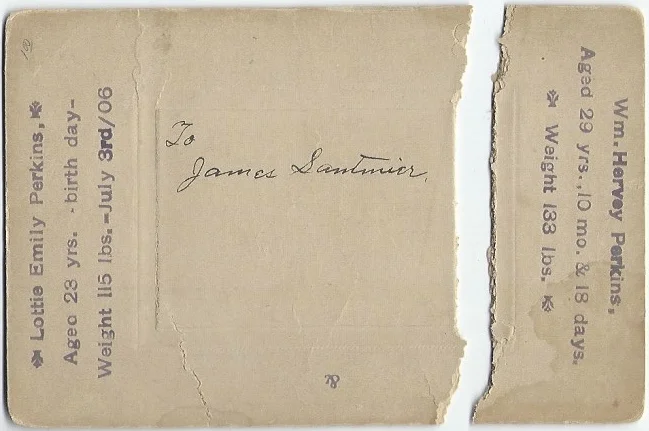 Lottie Emily Perkins,
Aged 23 yrs. - birth day-
Weight 115 lbs.-July 3rd/06
To
James Santmier.
&
Wm. Hervey Perkins,
Aged 29 yrs., 10 mo. & 18 days.
Weight 133 lbs.